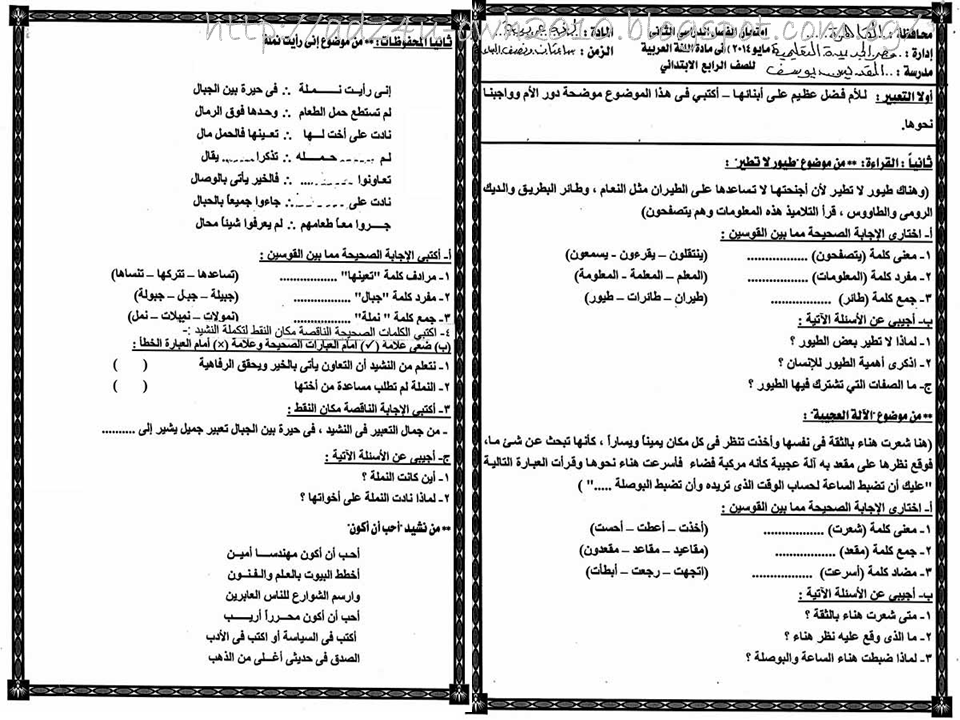 http://adz4u-own2010.blogspot.com.eg/
محافظة : القاهرة
امتحان الفصل الدراسى الثانى
المادة : لغة عربية
إدارة : مصر الجديدة التعليمية
مايو ٢٠١٤ / فى مادة اللغة العربية
الزمن : ساعتان ونصف
مدرسة : القديس يوسف
للصف الرابع الابتدائي
أولا التعبير : للأم فضل عظيم على أبنائها – أكتبي فى هذا الموضوع موضحة دور الأم وواجبنا
نحوها.
ثانياً : القراءة: ** من موضوع "طيور لا تطير" :
(وهناك طيور لا تطير لأن أجنحتها لا تساعدها على الطيران مثل النعام ، وطائر البطريق والديك
الرومى والطاووس ، قرأ التلاميذ هذه المعلومات وهم يتصفحون)
أ- اختارى الإجابة الصحيحة مما بين القوسين :
١- معنى كلمة (يتصفحون) ................. (ينتقلون - يقرءون - يسمعون)
٢- مفرد كلمة (المعلومات) ................. (المعلم – المعلمة - المعلومة)
٣- جمع كلمة (طائر) ................. (طيران – طائرات – طيور)
ب- أجيبى عن الأسئلة الآتية :
١- لماذا لا تطير بعض الطيور ؟
٢- اذكرى أهمية الطيور للإنسان ؟
ج- ما الصفات التي تشترك فيها الطيور ؟
** من موضوع "الآلة العجيبة" :
(هنا شعرت هناء بالثقة فى نفسها وأخذت تنظر فى كل مكان يميناً ويساراً ، كأنها تبحث عن شئ ما،
فوقع نظرها على مقعد به آلة عجيبة كأنه مركبة فضاء فأسرعت هناء نحوها وقرأت العبارة التالية
"عليك أن تضبط الساعة لحساب الوقت الذى تريده وأن تضبط البوصلة ....." )
أ- اختارى الإجابة الصحيحة مما بين القوسين :
١- معنى كلمة (شعرت) ................. (أخذت – أعطت – أحست)
٢- جمع كلمة (مقعد) ................. (مقاعيد – مقاعد – مقعدون)
٣- مضاد كلمة (أسرعت) ................. (اتجهت – رجعت – أبطأت)
ب- أجيبى عن الأسئلة الآتية :
١- متى شعرت هناء بالثقة ؟
٢- ما الذى وقع عليه نظر هناء ؟
٣- لماذا ضبطت هناء الساعة والبوصلة ؟
ثانيا المحفوظات : ** من موضوع إنى رأيت نملة
إنى رأيت نملة ∴ فى حيرة بين الجبال
لم تستطع حمل الطعام ∴ وحدها فوق الرمال
نادت على أخت لها ∴ تعينها فالحمل مال
لم ........ حمله ∴ تذكرا ........ يقال
تعاونوا ........ ∴ فالخير يأتى بالوصال
نادت على ........ ∴ جاءوا جميعاً بالحبال
جروا معاً طعامهم ∴ لم يعرفوا شيئاً محال
أ- أكتبى الإجابة الصحيحة مما بين القوسين :
١- مرادف كلمة "تعينها" ................. (تساعدها – تتركها – تنساها)
٢- مفرد كلمة "جبال" ................. (جبيلة – جبل – جبولة)
٣- جمع كلمة " نملة" ................. (نمولات – نميلات – نمل)
٤- اكتبى الكلمات الصحيحة الناقصة مكان النقط لتكملة النشيد :-
(ب) ضعى علامة (√) أمام العبارات الصحيحة وعلامة (×) أمام العبارة الخطأ :
١- نتعلم من النشيد أن التعاون يأتى بالخير ويحقق الرفاهية ( )
٢- النملة لم تطلب مساعدة من أختها ( )
٣- أكتبى الإجابة الناقصة مكان النقط :
- من جمال التعبير فى النشيد ، فى حيرة بين الجبال تعبير جميل يشير إلى ..........
ج- أجيبى عن الأسئلة الآتية :
١- أين كانت النملة ؟
٢- لماذا نادت النملة على أخواتها ؟
** من نشيد "أحب أن أكون"
أحب أن أكون مهندسا أمين
أخطط البيوت بالعلم والفنون
وارسم الشوارع للناس العابرين
أحب أن أكون محرراً أريب
أكتب فى السياسة أو اكتب فى الأدب
الصدق فى حديثى أغلى من الذهب